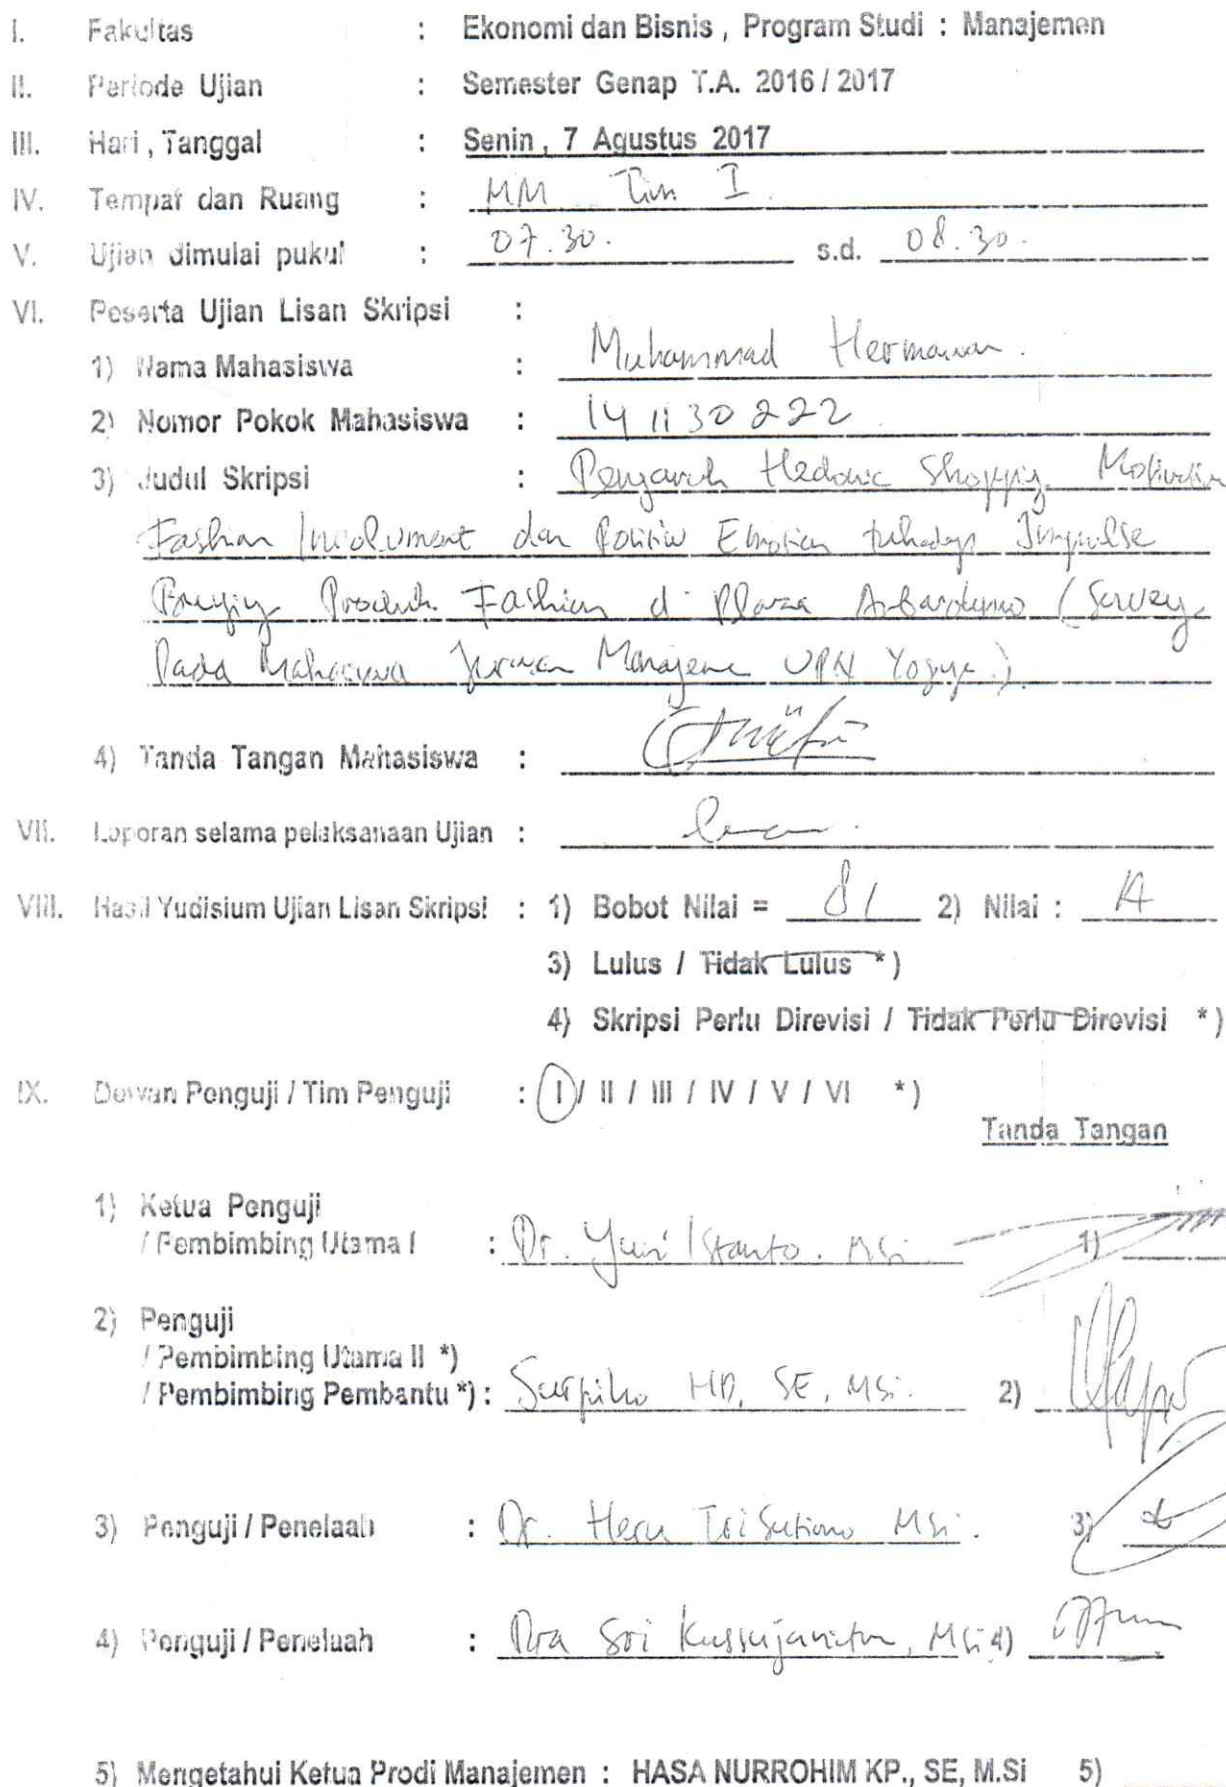 I. Fakultas : Ekonomi dan Bisnis , Program Studi : Manajemen
II. Periode Ujian : Semester Genap T.A. 2016 / 2017
III. Hari , Tanggal : Senin , 7 Agustus 2017
IV. Tempat dan Ruang : MM Tim I.
V. Ujian dimulai pukul : 07.30. s.d. 08.30.
VI. Peserta Ujian Lisan Skripsi :
1) Nama Mahasiswa : Muhammad Hermawan.
2) Nomor Pokok Mahasiswa : 141130222
3) Judul Skripsi : Pengaruh Hedonic Shopping Motivation
Fashion Involvment dan Positive Emotion terhadap Impulse
Buying Produk Fashion di Plaza Ambarukmo (Survey
Pada Mahasiswa Jurusan Manajemen UPN Yogya).
4) Tanda Tangan Mahasiswa :
VII. Laporan selama pelaksanaan Ujian :
VIII. Hasil Yudisium Ujian Lisan Skripsi : 1) Bobot Nilai = 81 2) Nilai : A
3) Lulus / Tidak Lulus *)
4) Skripsi Perlu Direvisi / Tidak Perlu Direvisi *)
IX. Dewan Penguji / Tim Penguji : I / II / III / IV / V / VI *)
Tanda Tangan
1) Ketua Penguji
/ Pembimbing Utama I : Dr. Yuni Istanto. MSi 1)
2) Penguji
/ Pembimbing Utama II *)
/ Pembimbing Pembantu *) : HD, SE, MSi. 2)
3) Penguji / Penelaah : Dr. Heru Tri Sutiono MSi. 3)
4) Penguji / Penelaah : Dra Sri Kussujaniatun, MSi 4)
5) Mengetahui Ketua Prodi Manajemen : HASA NURROHIM KP., SE, M.Si 5)